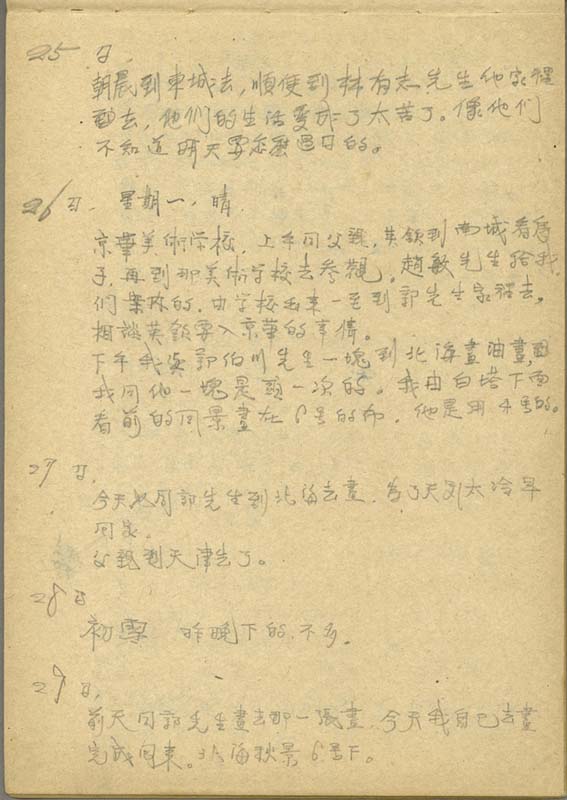 25日.
朝晨到東城去，順便到林有志先生他家裡
面去，他們的生活變成了太苦了。像他們
不知道明天要怎麼過日的。
26日. 星期一、晴.
京華美術学校，上午同父親，英欽到南城看房
子，再到那美術学校去參觀，趙敏先生給我
們案內的，由学校出來一至到郭先生家裡去，
相談英欽要入京華的事情。
下午我與郭伯川先生一塊到北海畫油畫,
我同他一塊是頭一次的。我由白塔下面
看前的同景畫在6号的布，他是用4号的。
27日.
今天也同郭先生到北海去畫，為了天到太冷早
回家。
父親到天津去了。
28日
初雪 昨晚下的.不多。
29日.
前天同郭先生畫去那一張畫.今天我自己去畫
完成回來。北海秋景6号F。